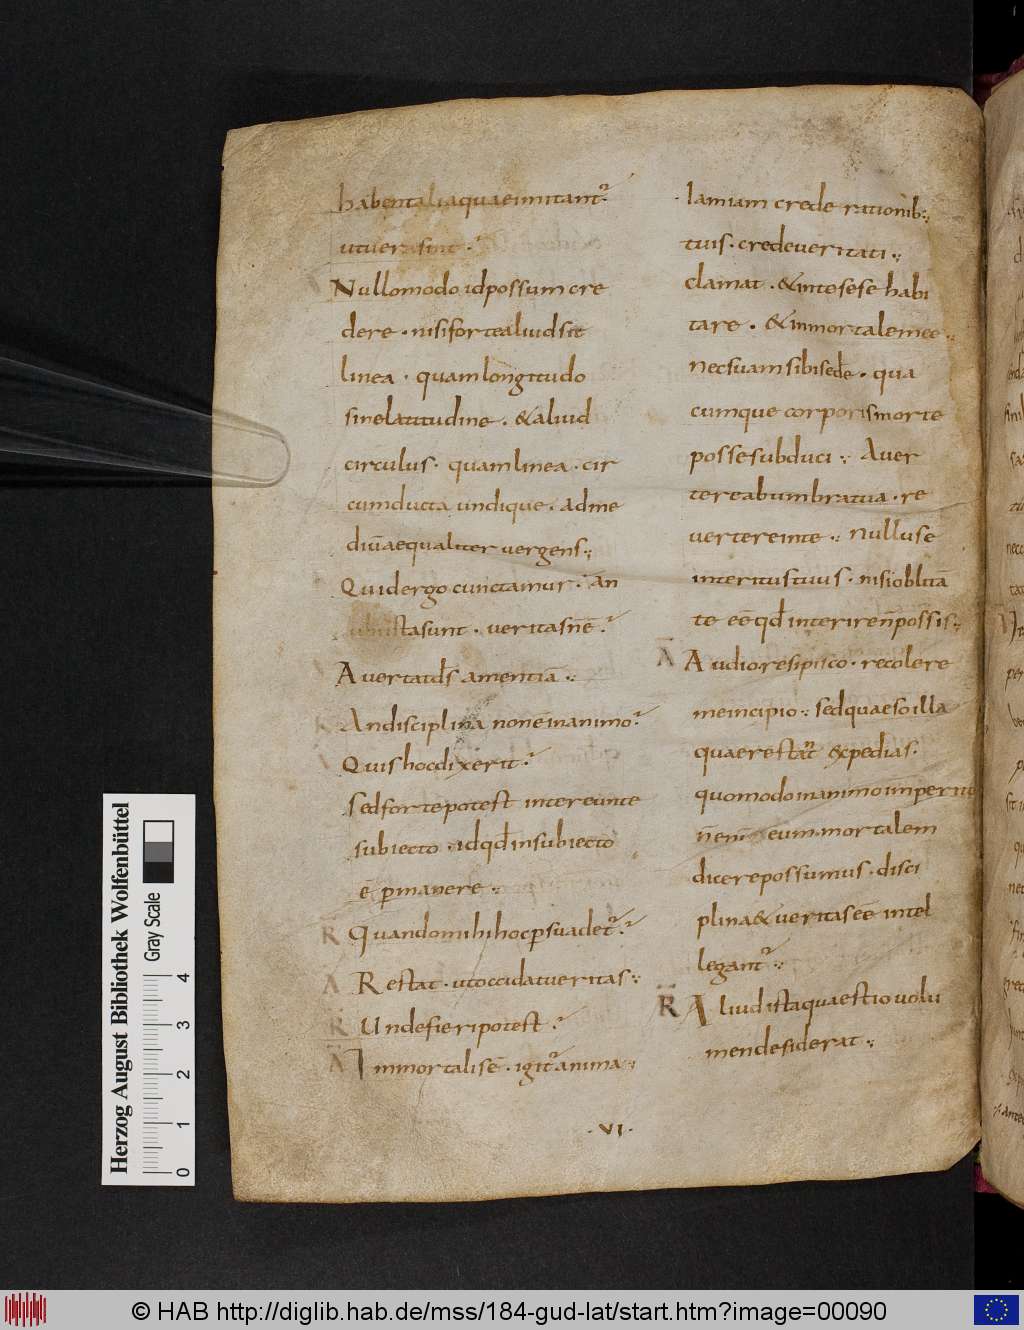 habent aliaquaeimitant᷑
utverasint.
Nullomodo idpossum cre
dere · nisifortealiudsit
linea · quamlongitudo
sinelatitudine . &aliud
circulus · quamlinea · cir
cumducta undique · adme
diūaequaliter vergens
Quid ergo cunctamur · an
ubi istasunt · veritas nē
Avertat ds amentiā
An disciplina non ē in animo
Quis hoc dixerit
sedforte potest intereunte
subiecto · id qd in subiecto
ē pmanere
R Quandomihi hoc psuadet
A Restat · ut occidat veritas
R Unde fieri potest
A Inmortalis ē · igit anima
Iamiam crede rationib;
tuis · crede veritati
clamat . &inte sese habi
tare . & inmortalem ee
nec suam sibi sedē · qua
cumque corporis morte
posse subduci Aver
tere ab umbra tua · re
vertere in te nullus e
interitus tuus · nisi oblitā
te ee qd interire n possis
A Audio resipisco · recolere
me incipio sed quaeso illa
quae restat expedias
quomodo in animo inperito
n enī eum mortalem
dicere possumus · disci
plina & veritas eē intel
legant
R Aliud ista quaestio volu
men desiderat
· VI ·
Herzog August Bibliothek Wolfenbüttel
Gray Scale
0 1 2 3 4
© HAB http://diglib.hab.de/mss/184-gud-lat/start.htm?image=00090